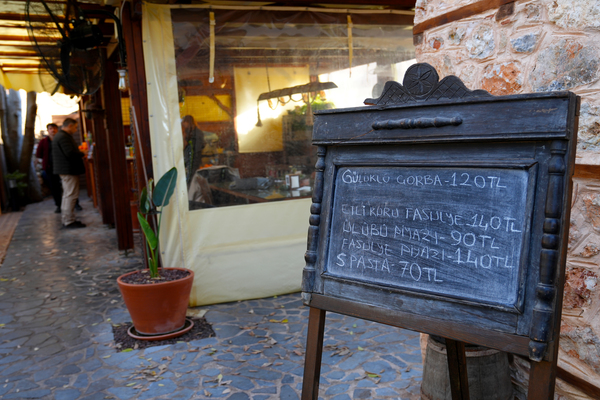 GÜLÜKLÜ ÇORBA-120TL
ETLİ KURU FASULYE 140TL
ÜLÜBÜ PİYAZI-90TL
FASULYE PİYAZI-140TL
S PASTA-70TL